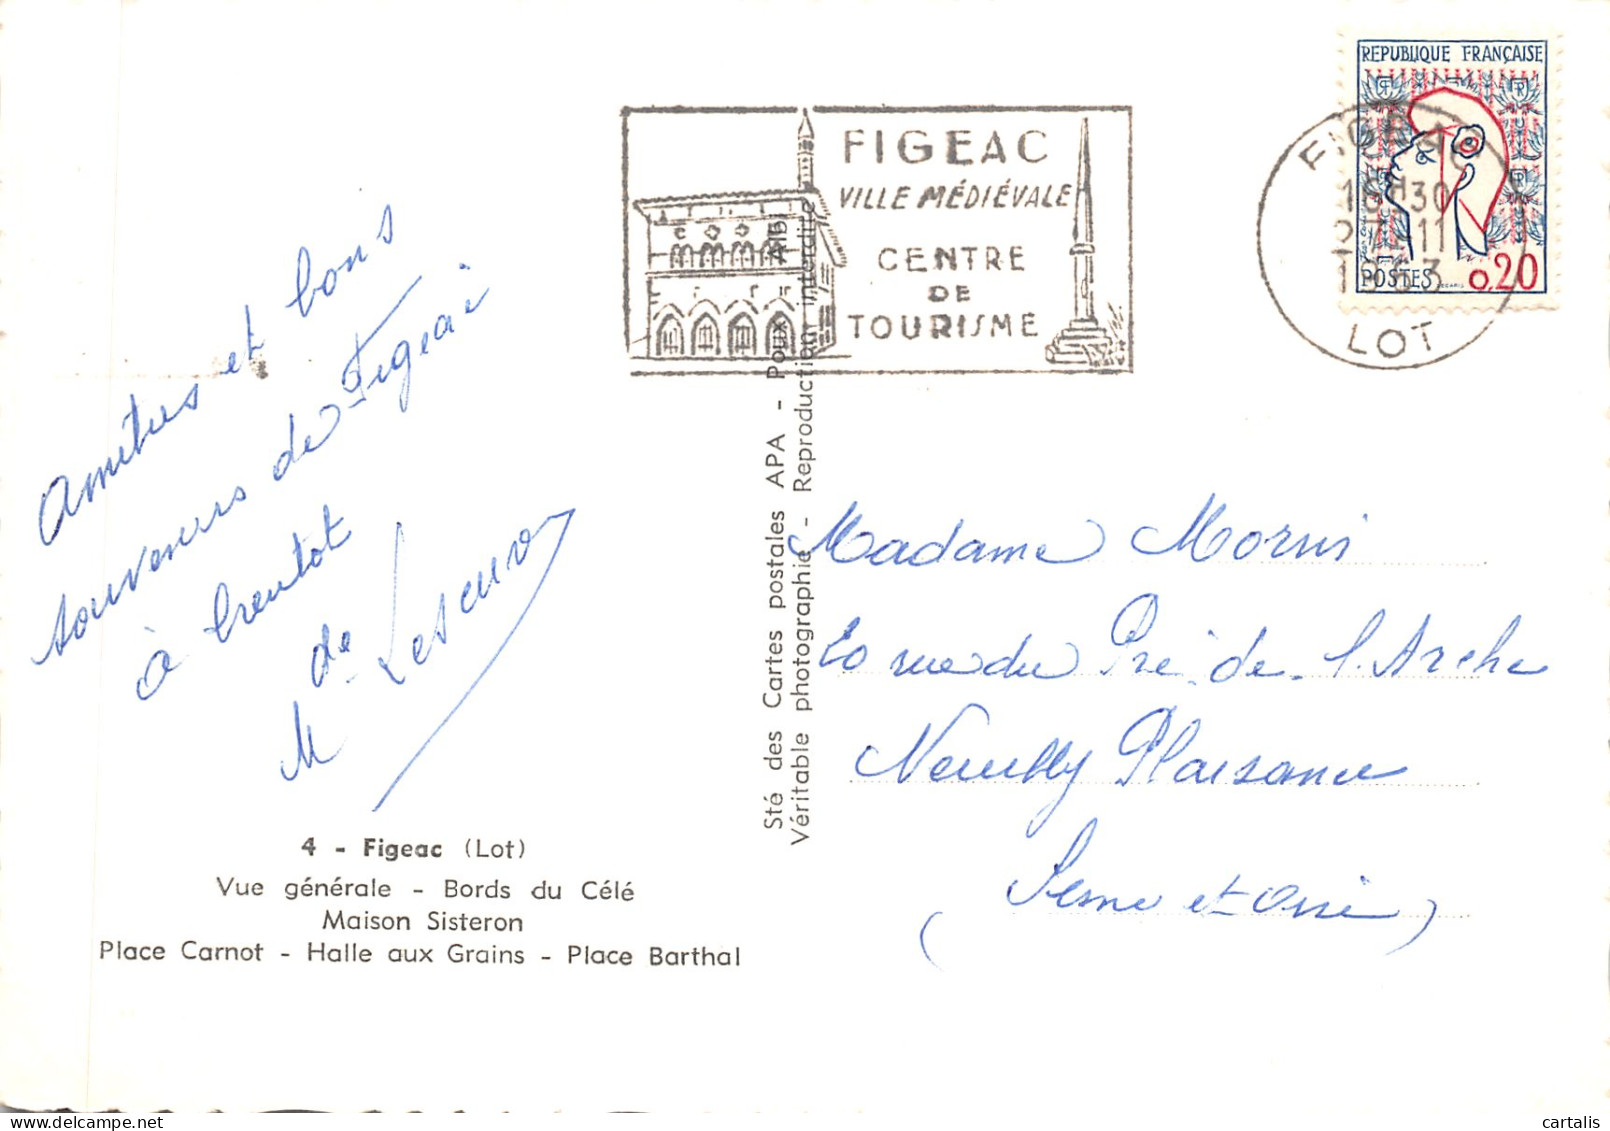 REPUBLIQUE FRANÇAISE
POSTES 0,20
FIGEAC
18H30
27-11
1963
LOT
FIGEAC
VILLE MÉDIÉVALE
CENTRE
DE
TOURISME
Amitiés et bons
souvenirs de Figeac
à bientot
M de Leseuro
Sté des Cartes postales APA - Poux - Albi
Véritable photographie - Reproduction interdite
Madame Morus
20 rue du Pré-de-l'Arche
Neuilly Plaisance
(Seine et Oise)
4 - Figeac (Lot)
Vue générale - Bords du Célé
Maison Sisteron
Place Carnot - Halle aux Grains - Place Barthal
cartalis